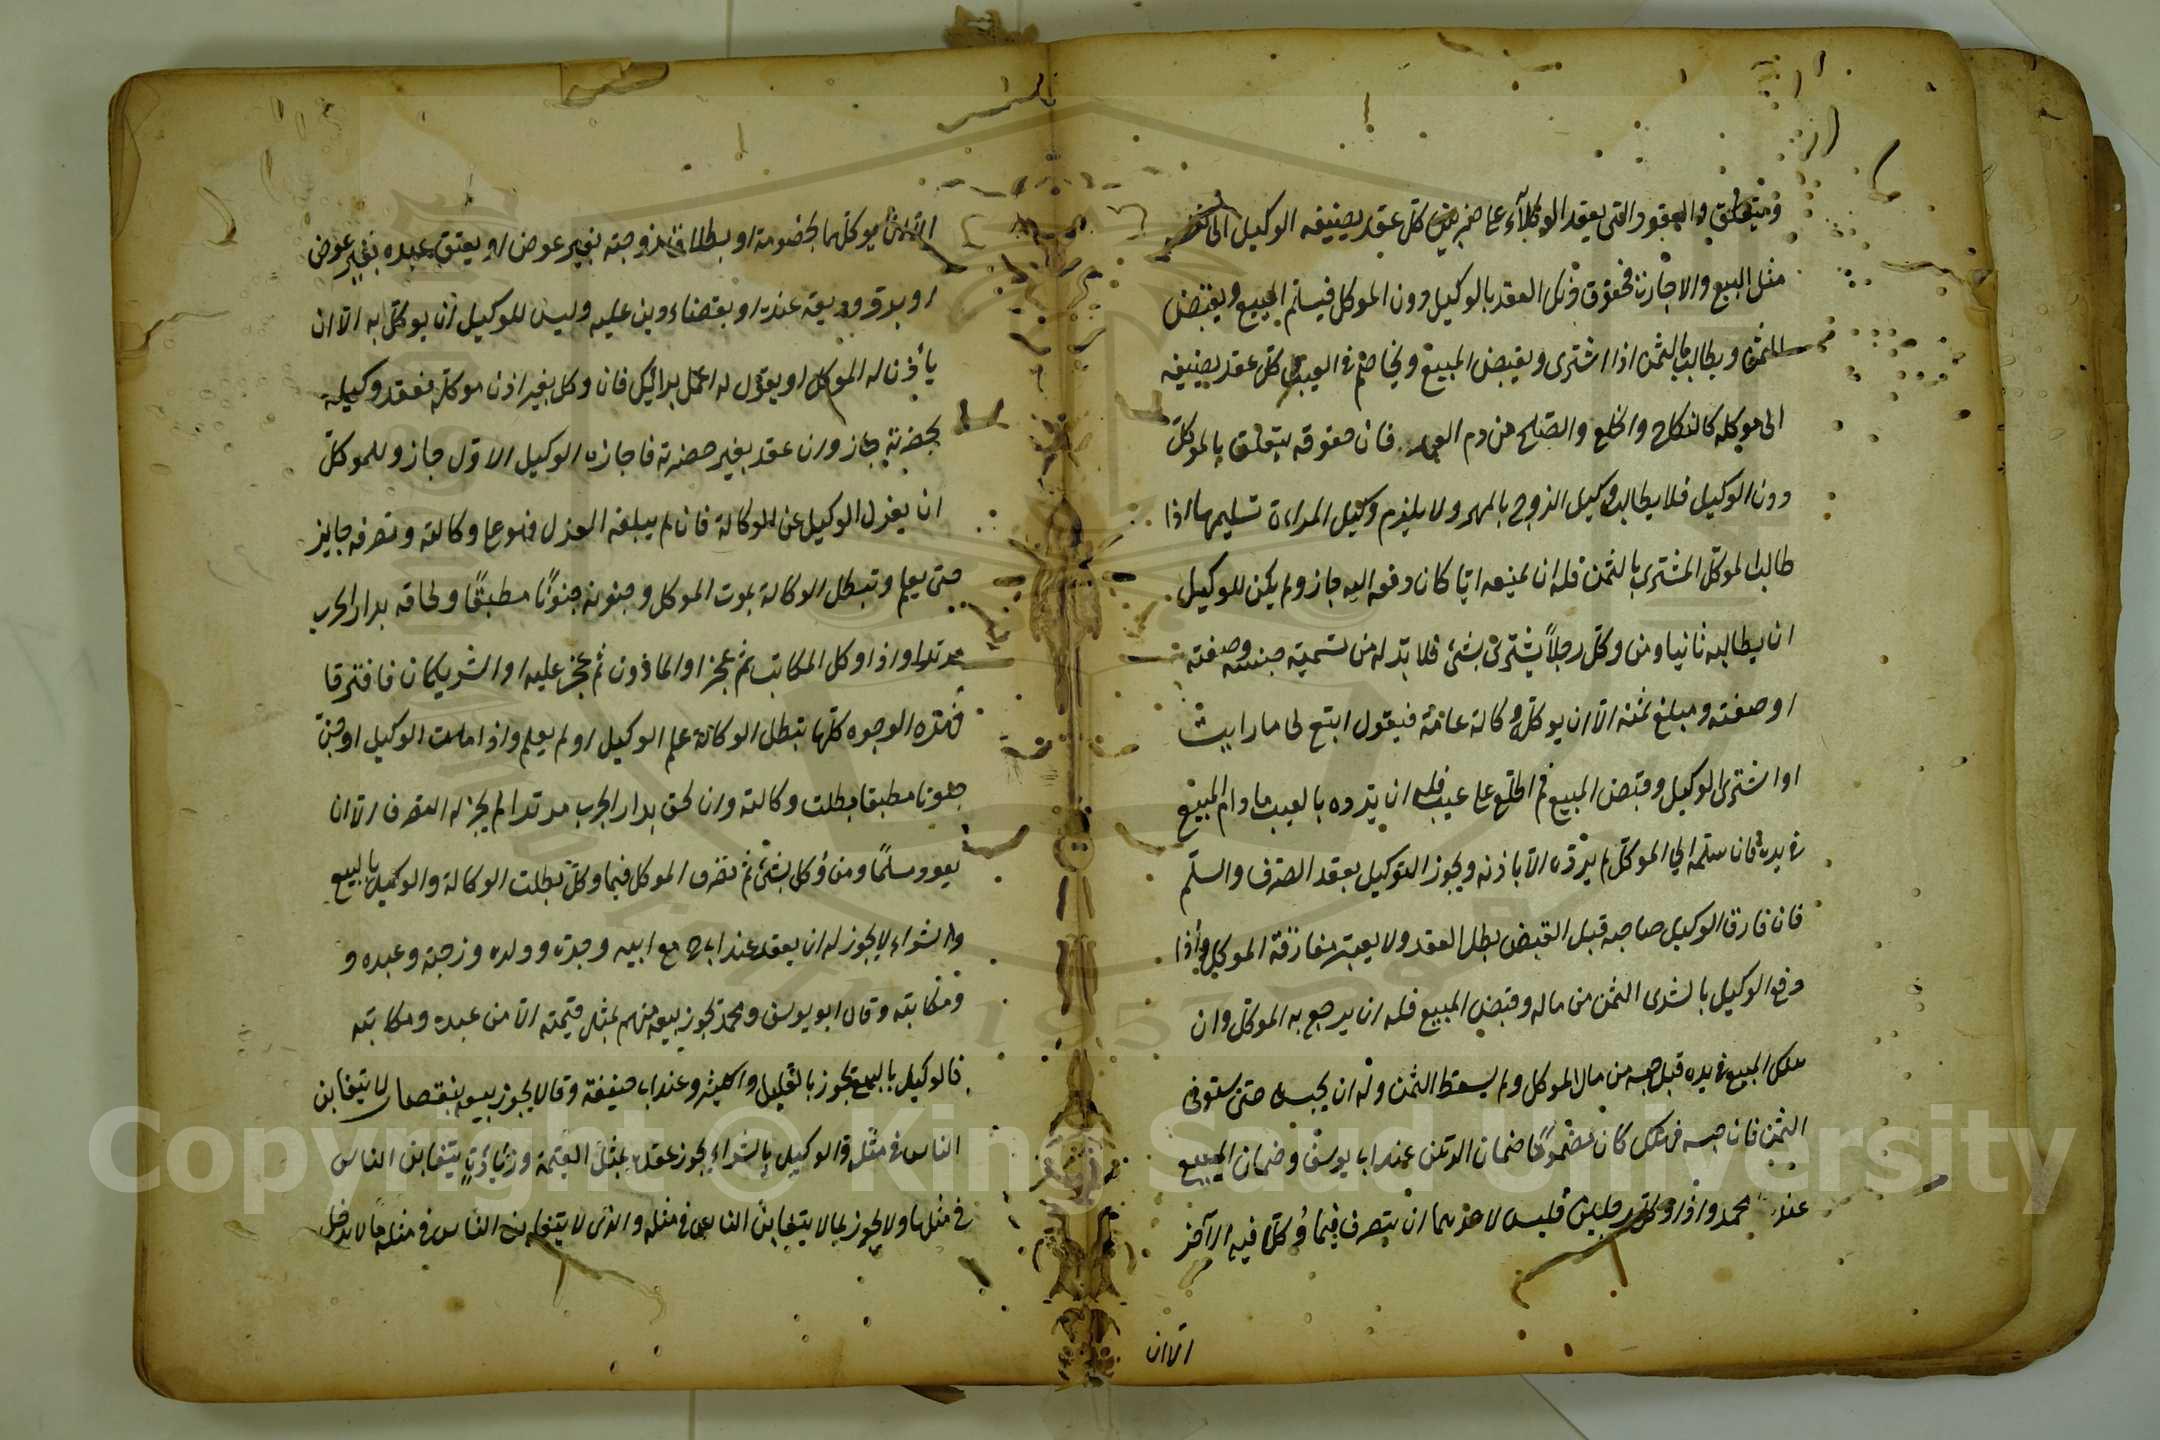 ومتعلق والعقود التى يعقد الوكلآء على ضربين كل عقد يضيفه الوكيل الى نفسه
مثل البيع والاجارت فحقوق ذلك العقد بالوكيل دون الموكل فيسلم المبيع ويقبض
الثمن ويطالب بالثمن اذا اشترى ويقبض المبيع ويخاصم فى العيب وكل عقد يضيفه
الى موكله كالنكاح والخلع والصلح من دم العمد فان حقوقه يتعلق بالموكل
دون الوكيل فلا يطالب وكيل الزوج بالمهر ولا يلزم وكيل المراءة تسليمها اذا
طالب الموكل المشترى بالثمن فله ان يمنعه اياه كان دفعه اليه جاز ولم يكن للوكيل
ان يطالبه ثانيا ومن وكل رجلاً يشترى بشئ فلا بد له من تسمية جنسه وصفته
او صفته ومبلغ ثمنه الا ان يوكل وكالة عامة فيقول ابتع لى ما رايت
اوا اشترى الوكيل وقبض المبيع ثم اطلع على عيب فله ان يرده بالعيب ما دام المبيع
فى يده فان سلمه الى الموكل لم يرده الا باذنه ويجوز التوكيل بعقد الصرف والسلم
فان فارق الوكيل صاحبه قبل القبض بطل العقد ولا يعتبر مفارقة الموكل واذا
دفع الوكيل بالشرى الثمن من ماله وقبض المبيع فله ان يرجع به الموكل وان
هلك المبيع فى يده قبل حبسه من مال الموكل ولم يسقط الثمن وله ان يحبسه حتى يستوفى
الثمن فان حبسه فهلك كان مضمونًا ضمان الرهن عند ابى يوسف وضمان المبيع
عند محمد واذا وكل رجلين فليس لاحدهما ان يتصرف فيما وكلا فيه الآخر
الا ان
الا ان يوكلهما بخصومة او بطلاق زوجته بغير عوض او يعتق عبده بغير عوض
او برد وديعة عنده او بقضاء دين عليه وليس للوكيل ان يوكل به الا ان
يأذن له الموكل او يقول له اعمل برائيك فان وكل بغير اذن موكله فعقد وكيله
بحضرته جاز وان عقد بغير حضرته فاجازه الوكيل الاول جاز وللموكل
ان يعزل الوكيل عن الوكالة فان لم يبلغه العزل فهو على وكالته وتصرفه جايز
حتى يعلم وتبطل الوكالة بموت الموكل وجنونه جنونًا مطبقًا ولحاقه بدار الحرب
مرتدا واذا وكل المكاتب ثم عجز او الماذون ثم حجر عليه او الشريكان فافترقا
فهذه الوجوه كلها تبطل الوكالة علم الوكيل او لم يعلم واذا مات الوكيل او جن
جنونا مطبقا بطلت وكالته وان لحق بدار الحرب مرتدا لم يجز له التصرف الا ان
يعود مسلمًا ومن وكل بشئ ثم تصرف الموكل فيما وكل بطلت الوكالة والوكيل بالبيع
والشراء لا يجوز له ان يعقد عند ابى ح مع ابيه وجده وولده وزجته وعبده و
ومكاتبه وقال ابو يوسف ومحمد يجوز بيعه منهم بمثل قيمته الا من عبده ومكاتبه
فالوكيل بالبيع يجوز بالقليل والكثير وعند ابى حنيفة وقالا يجوز بيعه بنقصان لا يتغابن
الناس فى مثله والوكيل بالشراء يجوز عقده بمثل القيمة وزيادة يتغابن الناس
فى مثلها ولا يجوز بما لا يتغابن الناس فى مثله والذى لا يتغابن الناس فى مثله ما لا يدخل